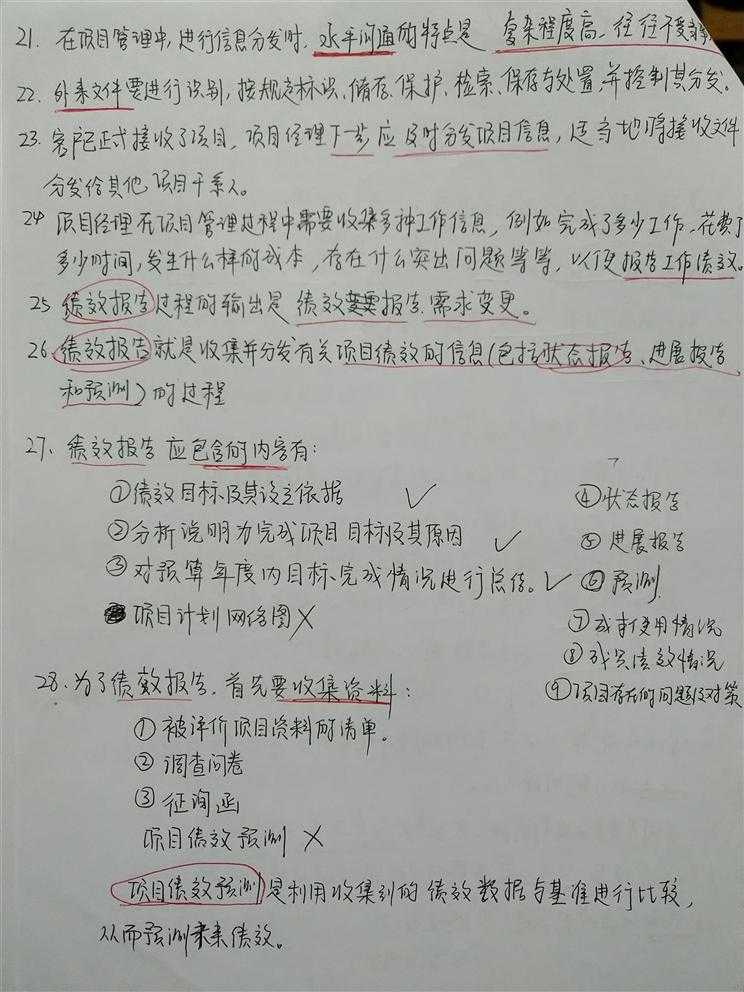 21. 在项目管理中,进行信息分发时,水平沟通的特点是 复杂程度高,往往不受
22. 外来文件要进行识别,按规定标识、储存、保护、检索、保存与处置,并控制其分发。
23. 客户已正式接收了项目,项目经理下一步应及时分发项目信息,适当地将接收文件
分发给其他项目干系人。
24 项目经理在项目管理过程中需要收集多种工作信息,例如完成了多少工作,花费了
多少时间,发生什么样的成本,存在什么突出问题等等,以便报告工作绩效。
25 绩效报告过程的输出是 绩效报告、需求变更。
26. 绩效报告就是收集并分发有关项目绩效的信息(包括状态报告、进展报告
和预测)的过程
27. 绩效报告应包含的内容有:
①绩效目标及其设立依据 ✓
②分析说明为完成项目目标及其原因 ✓
③对预算年度内目标完成情况进行总结。✓
项目计划网络图 ×
④状态报告
⑤进展报告
⑥预测
⑦成本使用情况
⑧成员绩效情况
⑨项目存在的问题及对策
28. 为了绩效报告,首先要收集资料:
①被评价项目资料的清单。
②调查问卷
③征询函
项目绩效预测 ×
项目绩效预测是利用收集到的绩效数据与基准进行比较,
从而预测未来绩效。